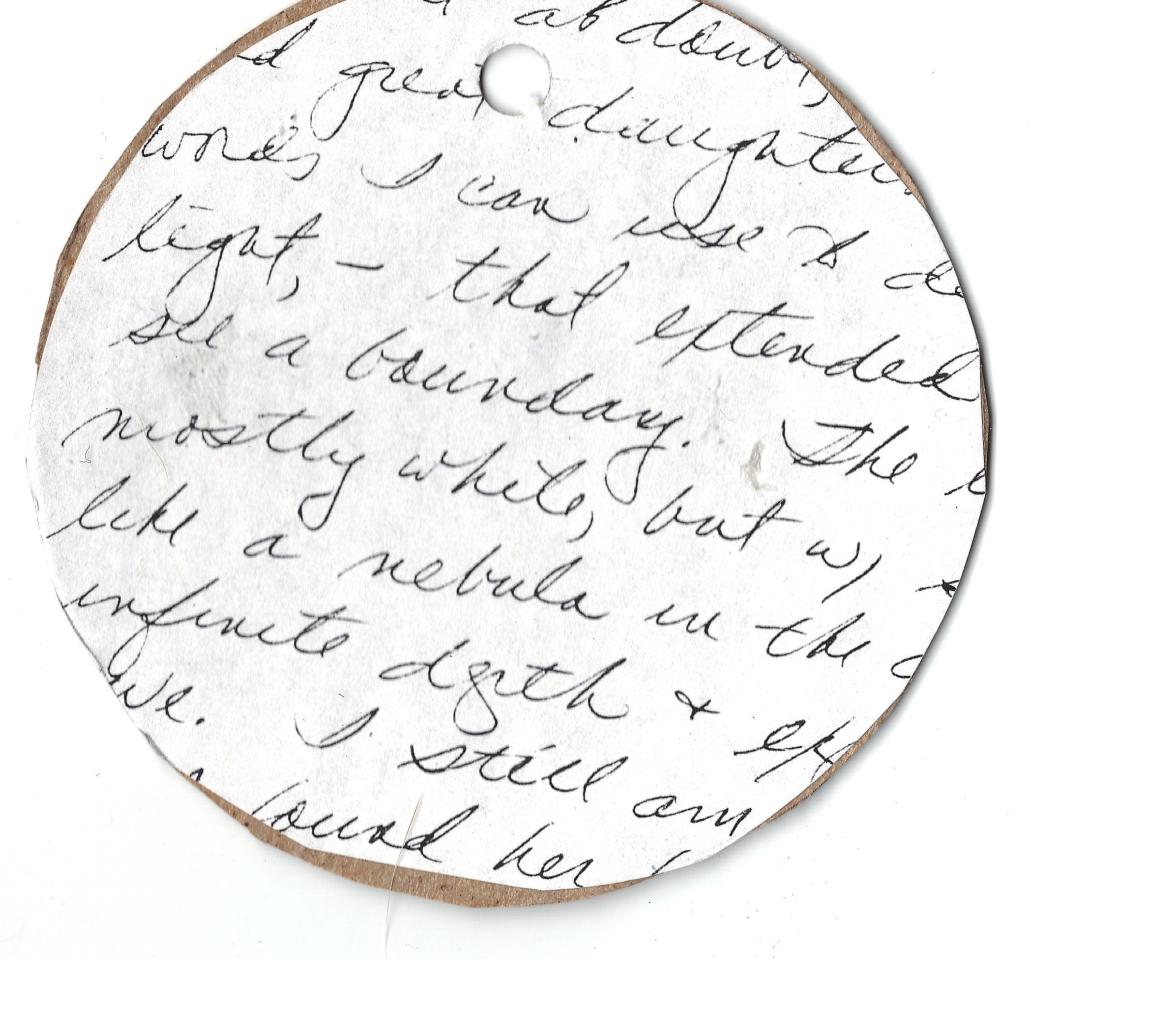 doubt,
great daughter
words I can use to de
light, — that extended
see a boundary. The
mostly white, but w/
like a nebula in the
infinite depth & ex
I still am
found her